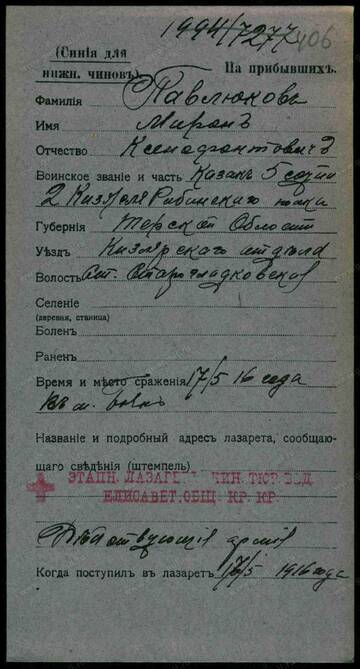 1994/7277 406
(Синія для нижн. чиновъ).
На прибывшихъ.
Фамилія Павлюковъ
Имя Миронъ
Отчество Ксенофонтовичъ
Воинское званіе и часть Казакъ 5 сотни
2 Кизляро Гребенского полка
Губернія Терской Области
Уѣздъ Кизлярскаго отдѣла
Волость Ст. Старогладковской
Селеніе
(деревня, станица)
Боленъ
Раненъ
Время и мѣсто сраженія 17/5 16 года
Названіе и подробный адресъ лазарета, сообщаю-
щаго свѣдѣнія (штемпель)
ЭТАПН. ЛАЗАРЕТ ЧИН. ТЮР. ВѢД.
ЕЛИСАВЕТ. ОБЩ. КР. КР.
Дѣйствующія армія
Когда поступилъ въ лазаретъ 17/5 1916 года